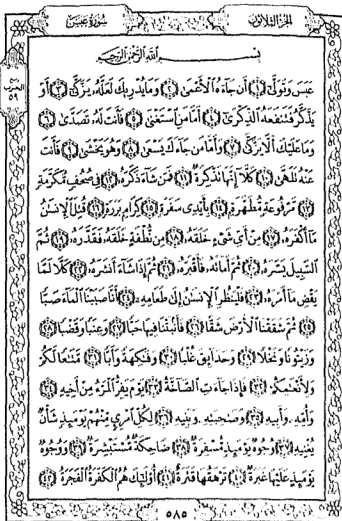 الجزء الثلاثون
سورة عبس
ربع الحزب ٥٩
بِسْمِ اللَّهِ الرَّحْمَٰنِ الرَّحِيمِ
عَبَسَ وَتَوَلَّىٰ ۝١ أَن جَاءَهُ الْأَعْمَىٰ ۝٢ وَمَا يُدْرِيكَ لَعَلَّهُ يَزَّكَّىٰ ۝٣ أَوْ
يَذَّكَّرُ فَتَنفَعَهُ الذِّكْرَىٰ ۝٤ أَمَّا مَنِ اسْتَغْنَىٰ ۝٥ فَأَنتَ لَهُ تَصَدَّىٰ ۝٦
وَمَا عَلَيْكَ أَلَّا يَزَّكَّىٰ ۝٧ وَأَمَّا مَن جَاءَكَ يَسْعَىٰ ۝٨ وَهُوَ يَخْشَىٰ ۝٩ فَأَنتَ
عَنْهُ تَلَهَّىٰ ۝١٠ كَلَّا إِنَّهَا تَذْكِرَةٌ ۝١١ فَمَن شَاءَ ذَكَرَهُ ۝١٢ فِي صُحُفٍ مُّكَرَّمَةٍ
۝١٣ مَّرْفُوعَةٍ مُّطَهَّرَةٍ ۝١٤ بِأَيْدِي سَفَرَةٍ ۝١٥ كِرَامٍ بَرَرَةٍ ۝١٦ قُتِلَ الْإِنسَانُ
مَا أَكْفَرَهُ ۝١٧ مِنْ أَيِّ شَيْءٍ خَلَقَهُ ۝١٨ مِن نُّطْفَةٍ خَلَقَهُ فَقَدَّرَهُ ۝١٩ ثُمَّ
السَّبِيلَ يَسَّرَهُ ۝٢٠ ثُمَّ أَمَاتَهُ فَأَقْبَرَهُ ۝٢١ ثُمَّ إِذَا شَاءَ أَنشَرَهُ ۝٢٢ كَلَّا لَمَّا
يَقْضِ مَا أَمَرَهُ ۝٢٣ فَلْيَنظُرِ الْإِنسَانُ إِلَىٰ طَعَامِهِ ۝٢٤ أَنَّا صَبَبْنَا الْمَاءَ صَبًّا
۝٢٥ ثُمَّ شَقَقْنَا الْأَرْضَ شَقًّا ۝٢٦ فَأَنبَتْنَا فِيهَا حَبًّا ۝٢٧ وَعِنَبًا وَقَضْبًا ۝٢٨
وَزَيْتُونًا وَنَخْلًا ۝٢٩ وَحَدَائِقَ غُلْبًا ۝٣٠ وَفَاكِهَةً وَأَبًّا ۝٣١ مَّتَاعًا لَّكُمْ
وَلِأَنْعَامِكُمْ ۝٣٢ فَإِذَا جَاءَتِ الصَّاخَّةُ ۝٣٣ يَوْمَ يَفِرُّ الْمَرْءُ مِنْ أَخِيهِ ۝٣٤
وَأُمِّهِ وَأَبِيهِ ۝٣٥ وَصَاحِبَتِهِ وَبَنِيهِ ۝٣٦ لِكُلِّ امْرِئٍ مِّنْهُمْ يَوْمَئِذٍ شَأْنٌ
يُغْنِيهِ ۝٣٧ وُجُوهٌ يَوْمَئِذٍ مُّسْفِرَةٌ ۝٣٨ ضَاحِكَةٌ مُّسْتَبْشِرَةٌ ۝٣٩ وَوُجُوهٌ
يَوْمَئِذٍ عَلَيْهَا غَبَرَةٌ ۝٤٠ تَرْهَقُهَا قَتَرَةٌ ۝٤١ أُولَٰئِكَ هُمُ الْكَفَرَةُ الْفَجَرَةُ ۝٤٢
٥٨٥